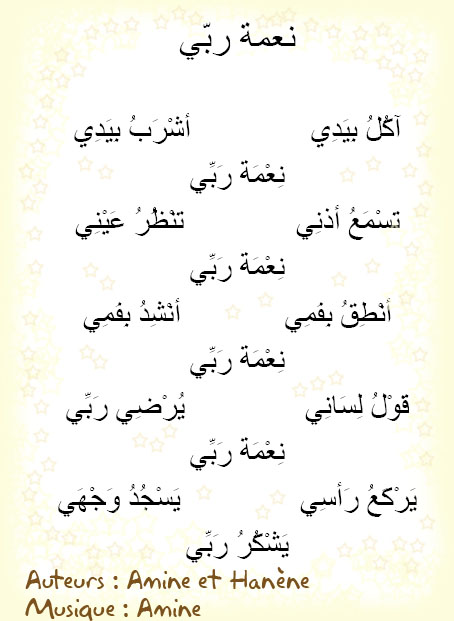 نعمة ربّي
آكُلُ بيَدِي أشْرَبُ بيَدِي
نِعْمَة رَبِّي
تسْمَعُ أذنِي تنْظُرُ عَيْنِي
نِعْمَة رَبِّي
أنْطِقُ بفمِي أنْشِدُ بفمِي
نِعْمَة رَبِّي
قوْلُ لِسَانِي يُرْضي رَبِّي
نِعْمَة رَبِّي
يَرْكعُ رَأسِي يَسْجُدُ وَجْهَي
يَشْكُرُ رَبِّي
Auteurs : Amine et Hanène
Musique : Amine